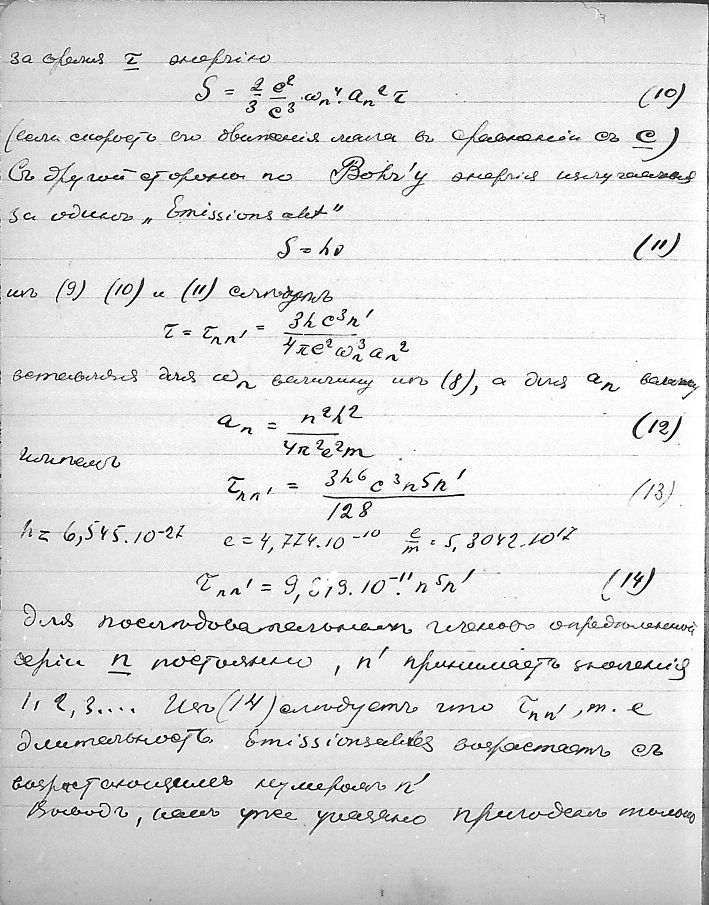 за время τ энергію
S = 2/3 e²/c³ ωₙ⁴. aₙ² τ (10)
(если скорость его движенія мала въ сравненіи съ c)
Съ другой стороны по Bohr'у энергія излучаемая
за одинъ „Emissionsakt"
S = hν (11)
изъ (9) (10) и (11) слѣдуетъ
τ = τₙₙ' = 3hc³n' / 4πe²ωₙ³aₙ²
вставляя для ωₙ величину изъ (8), а для aₙ величину
aₙ = n²h² / 4π²e²m (12)
имѣемъ
τₙₙ' = 3h⁶c³n⁵n' / 128 (13)
h = 6,545.10⁻²⁷ e = 4,774.10⁻¹⁰ e/m = 5,3042.10¹⁷
τₙₙ' = 9, 19.10⁻¹¹. n⁵n' (14)
Для послѣдовательныхъ членовъ опредѣленной
серіи n постоянно, n' принимаетъ значенія
1, 2, 3.... Изъ (14) слѣдуетъ что τₙₙ', т. е
длительность Emissionsaktes возрастаетъ съ
возрастающимъ нумеромъ n'
Выводъ, какъ уже указано пригоденъ только